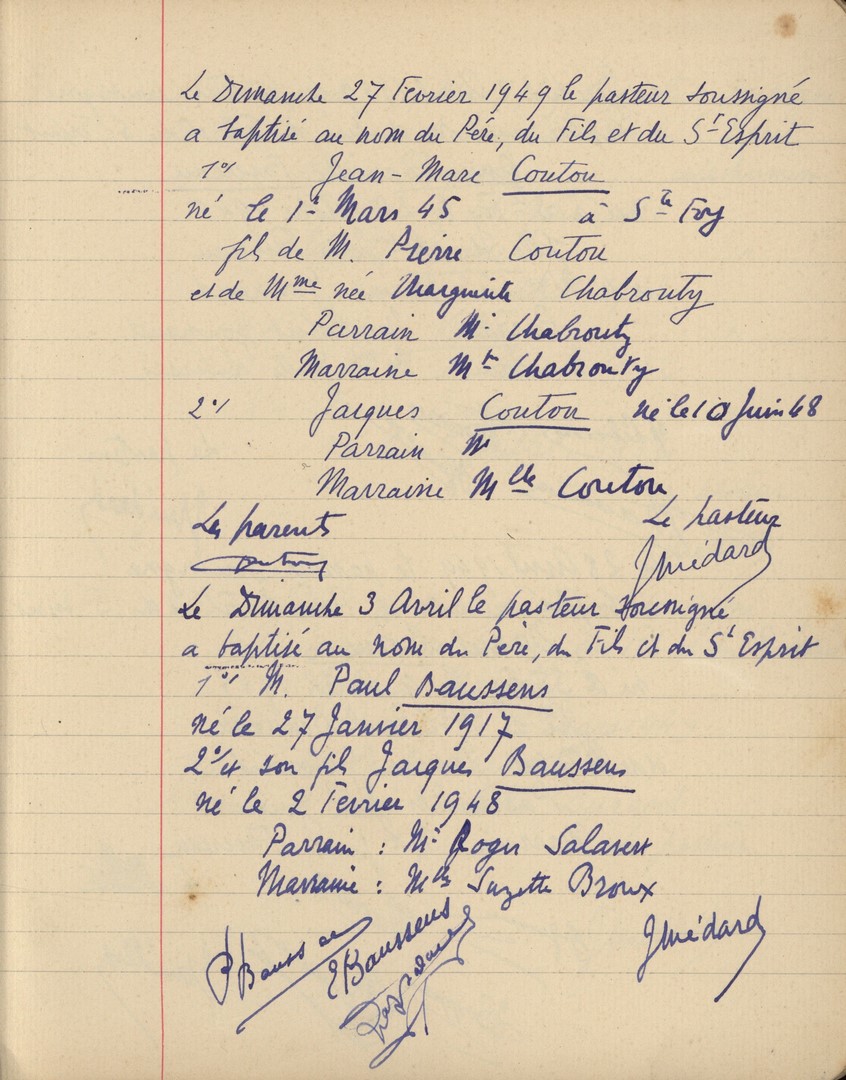 Le Dimanche 27 Février 1949 le pasteur soussigné
a baptisé au nom du Père, du Fils et du St Esprit
1°/ Jean-Marc Coutou
né le 1er Mars 45 à Ste Foy
fils de M. Pierre Coutou
et de Mme née Marguerite Chabrouty
Parrain Mr Chabrouty
Marraine Chabrouty
2°/ Jacques Coutou né le 10 Juin 48
Parrain M
Marraine Mlle Coutou
Les parents Le pasteur
JMédard
Le Dimanche 3 Avril le pasteur soussigné
a baptisé au nom du Père, du Fils et du St Esprit
1°/ M. Paul Baussens
né le 27 Janvier 1917
2°/ et son fils Jacques Baussens
né le 2 Février 1948
Parrain : Mr Roger Salavert
Marraine : Suzette Broux
P Baussens EBaussens JMédard